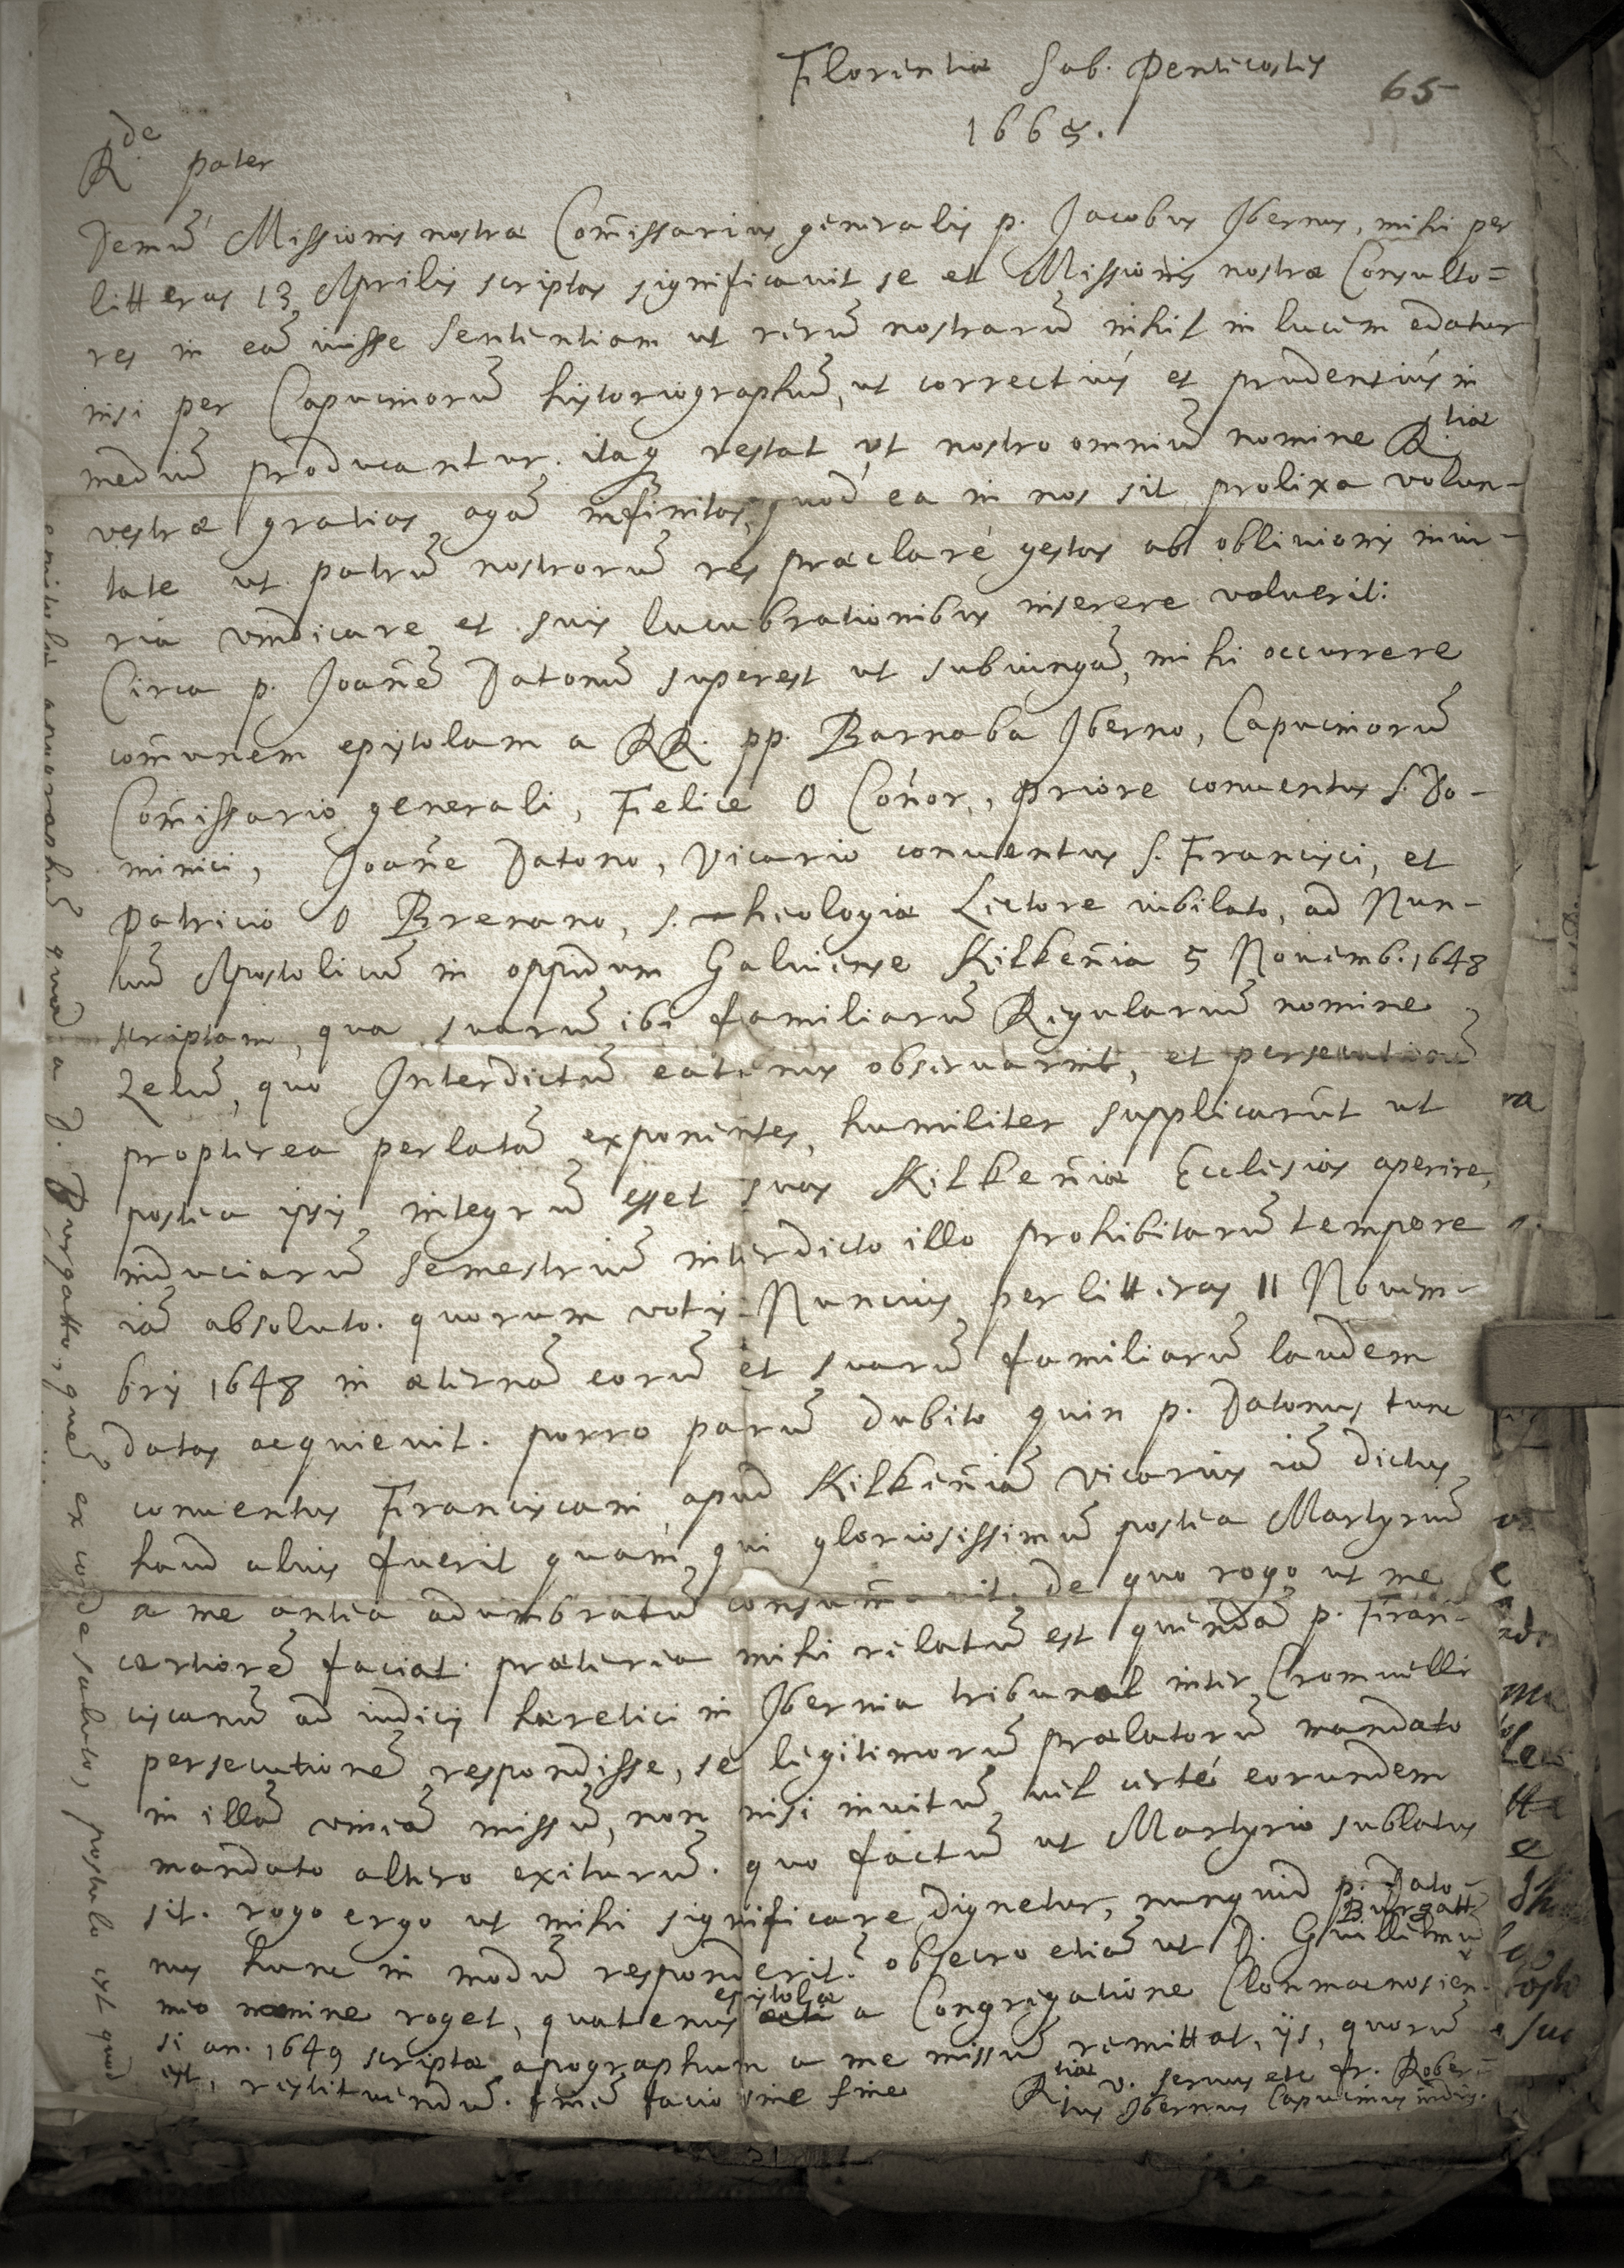 Florentiæ Sab. Penticostis
65
1665.
R.de pater
Demū Missionis nostræ Com̄issarius generalis p. Jacobus Jbernus, mihi per
litteras 13 Aprilis scriptas significauit se et Missionis nostræ Consulto=
res in eā iuisse sententiam ut rerū nostrarū nihil in lucem edatur
nisi per Capucinorū historiographū, ut correctiùs et prudentiùs in
mediū producantur. itaq restat ut nostro omniū nomine R.tiæ
vestræ gratias agā infinitas, quod ea in nos sit prolixa volun-
tate ut patrū nostrorū res præclarè gestas ab obliuionis iniu-
ria vindicare et suis lucubrationibus inserere voluerit:
Circa p. Joan̄ē Datonū superest ut subiungā, mihi occurrere
com̄unem epistolam a RR. pp. Barnaba Jberno, Capucinorū
Com̄issario generali, Felice O Con̄or, Priore conuentus S. Do-
minici, Joan̄e Datono, Vicario conuentus S. Francisci, et
Patricio O Brenano, S. Theologiæ Lectore iubilato, ad Nun-
tiū Apostolicū in oppidum Galuiense Kilken̄ia 5 Nouemb. 1648
scriptam, qua suarū ibi familiarū Regulariū nomine
Zelū, quo Interdictū eatenus obseruarint, et persecutionū
propterea perlatā exponentes, humiliter supplicarūt ut
postea ipsis integrū esset suas Kilken̄iæ Ecclesias aperire,
induciarū semestriū interdicto illo prohibitarū tempore
iā absoluto. quorum votis Nuncius per litteras 11 Nouem-
bris 1648 in æternā eorū et suarū familiarū laudem
datas acquieuit. porro parū dubito quin p. Datonus tunc
conuentus Franciscani apud Kilken̄iā vicarius iā dictus
haud alius fuerit quam, qui gloriosissimū postea Martyriū
a me antea adumbratū consum̄auit. de quo rogo ut me
certiorē faciat. præterea mihi relatū est quendā p. Fran-
ciscanū ad iudicis hæretici in Jbernia tribunal inter Cromuelli
persecutionē respondisse, se legitimorū prælatorū mandato
in illā vineā missū, non nisi inuitū vel certè eorundem
mandato altero exiturū. quo factū ut Martyrio sublatus
sit. rogo ergo ut mihi significare dignetur, nunquid p. Dato-
nus hunc in modū responderit? obsecro etiā ut D. Guillelmū Burgatt
meo nomine roget, quatenus epistolæ a Congregatione Clonmacnosien-
si an. 1649 scriptæ apographum a me missū remittat, ijs, quorū
est, restituendū. finē facio sine fine
R.tiæ v. seruus etc fr. Rober-
tus Jbernus Capucinus indig.
apographū quod a D. Burgatto, quē ex corde saluto, postulo est quod